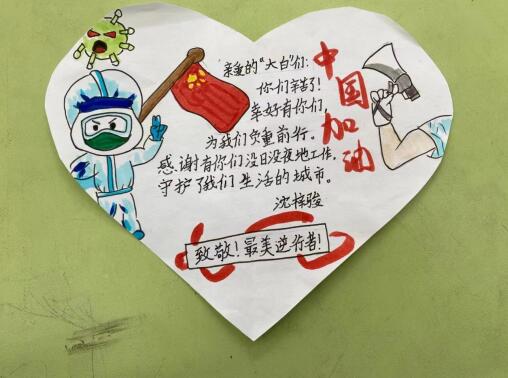 亲爱的“大白”们:
你们辛苦!
幸好有你们,
为我们负重前行。
感谢有你们没日没夜地工作,
守护了我们生活的城市。
沈梓骏
中国加油
致敬!最美逆行者!